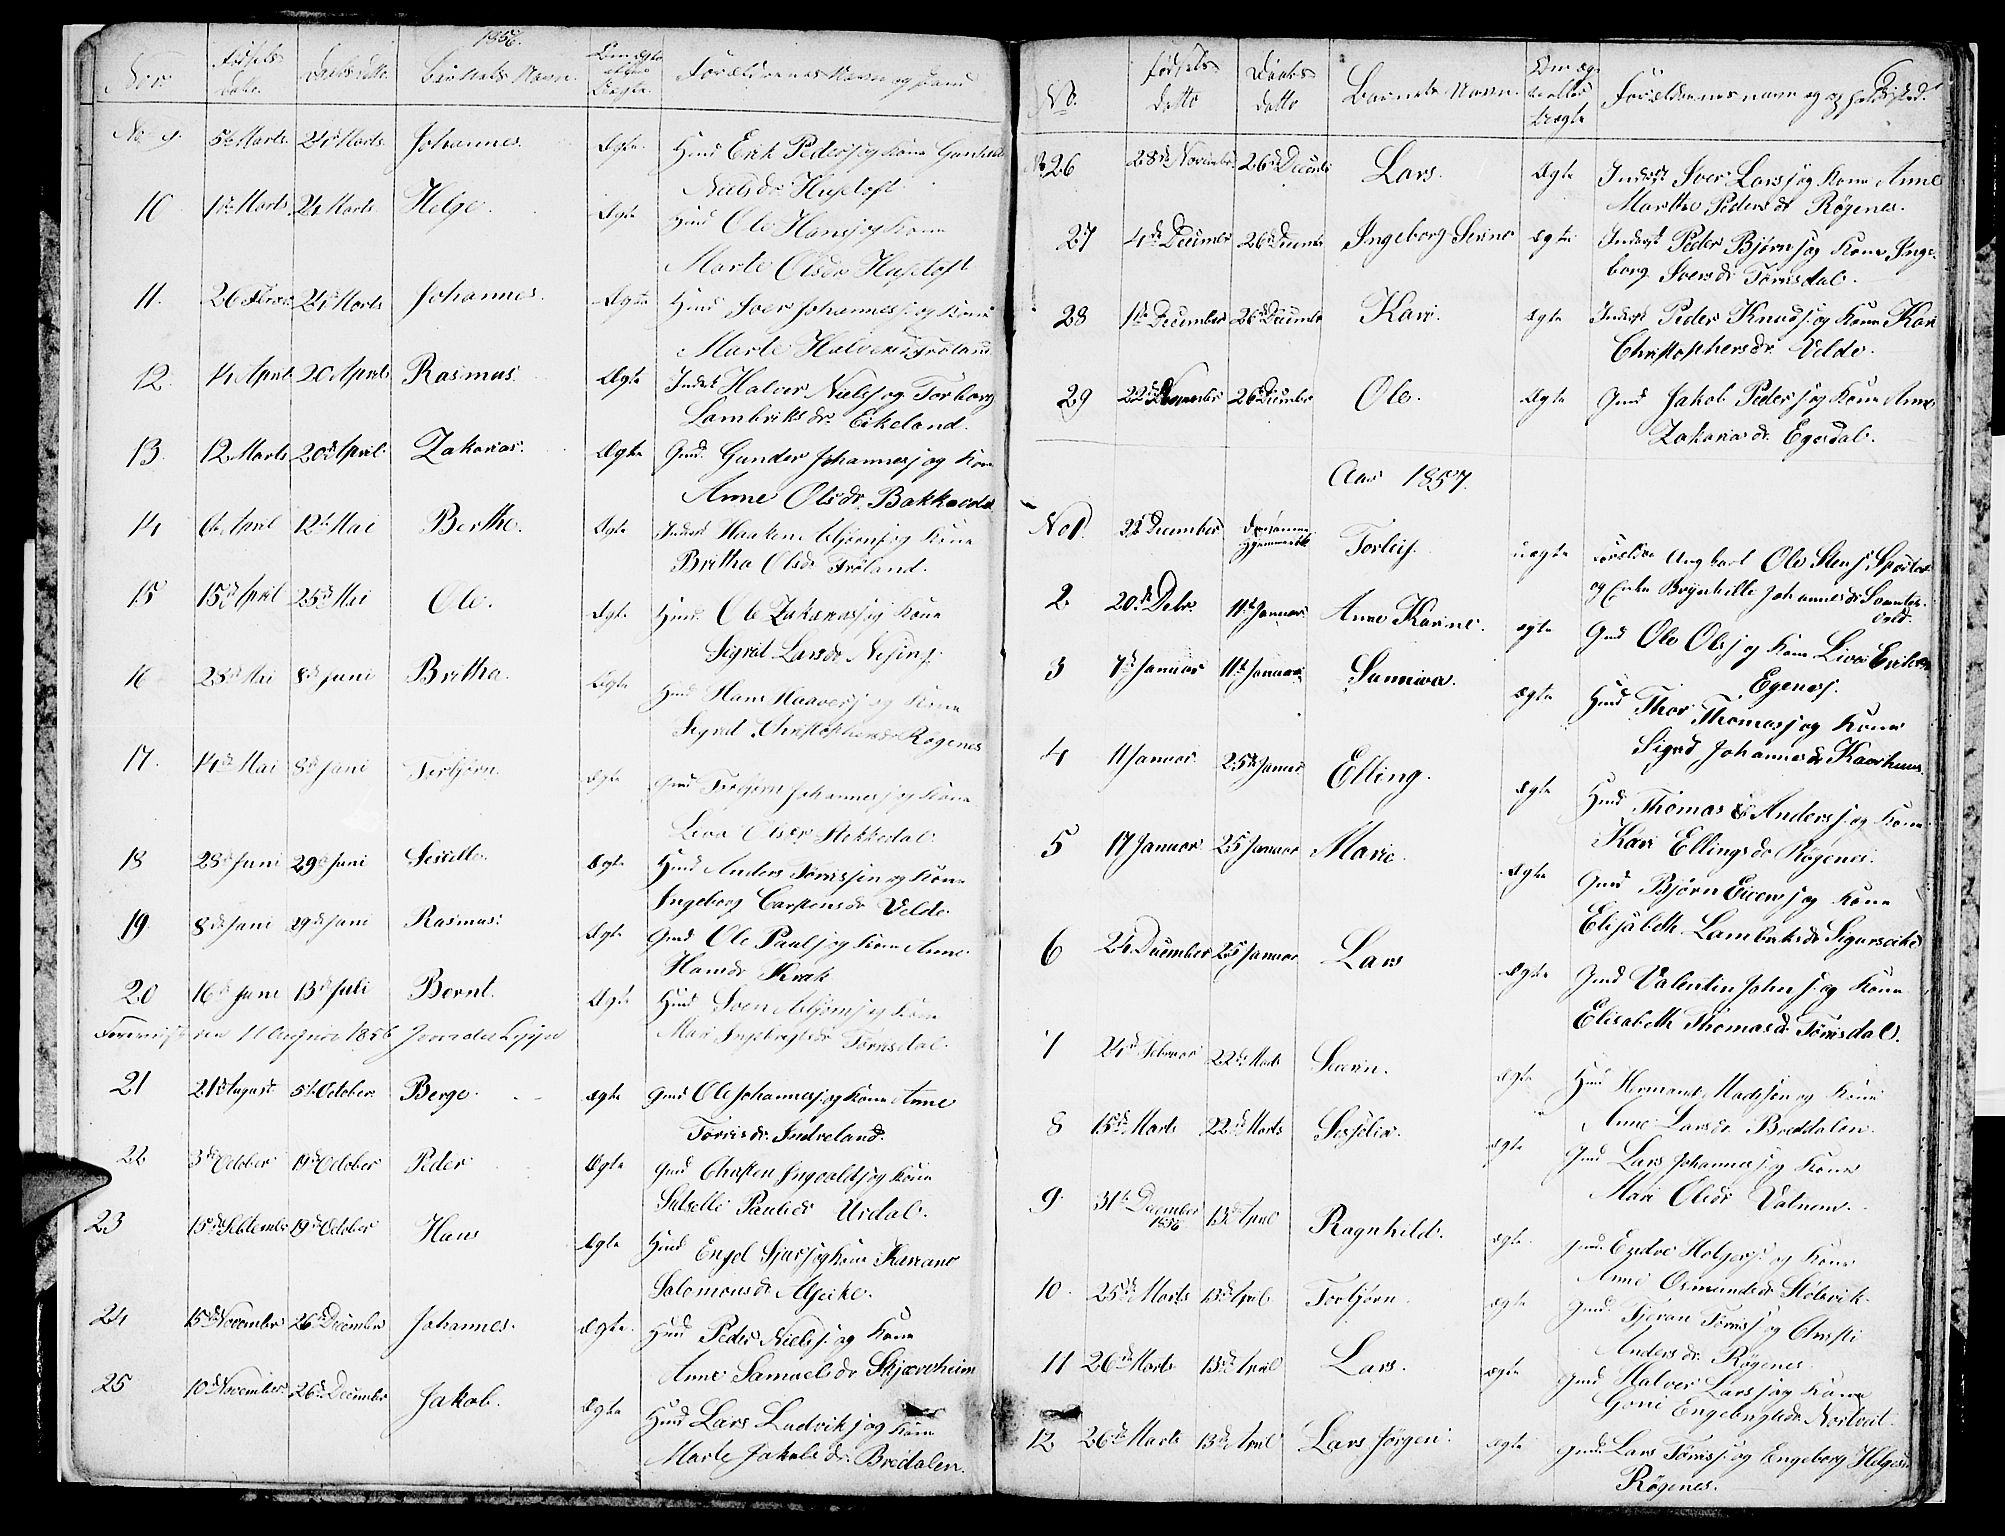 1856.
No. Fødsels Datte. Daabs datto. Barnets Navn. Om ægte eller Uægte. Forældrenes Navn og Stand
No 9. 5te Marts 24de Marts Johannes. Ægte. Huusd Erik Peders. og Kone Gunhild
Nielsdr. Hustoft.
10. 1ste Marts 24 Marts Helge. Ægte Huusd Ole Hans. og Kone
Marte Olsdr. Hustoft
11. 26 Febr. 24 Marts Johannes. Ægte Huusd Iver Johanness. og Kone
Marte Halvorsd. Frøland
12. 14 April 20 April Rasmus. Ægte Inds. Halvor Niels. og Torborg
Lambriktsdr. Eikeland.
13. 12 Marts 20de April Zakarias. Ægte Gmd. Gunder Johannes. og Kone
Anne Olsdr. Bakkevold
14 6te April 12te Mai Berthe. Ægte Inders. Haakon Asbjørns. og Kone
Britha Olsdr. Frøland.
15 15de April 25de Mai Ole. Ægte Huusd. Ole Zakarias. og Kone
Sigrid Larsdr.
16 28de Mai 8de Juni Britha. Ægte Huusd Hans Haavors. og Kone
Sigrid Christophersdr. Røgenes
17. 14de Mai 8de Juni Torbjørn. Ægte Gmd Torbjørn Johannes. og Kone
Liva Olsdr. Stokkedal.
18 28de Juni 29de Juni Ægte Huusd Anders Tørrissen og Kone
Ingeborg Carstensdr. Velde.
19. 8de Juni 29de Juni Rasmus. Ægte Gmd Ole Pauls. og Kone Anne
Hansdr. Kvak
20 16de Juni 13de Juli Bernt. Ægte Huusd Sven Asbjørns. og Kone
Mari Ingebrigtsdr. Tørrisdal.
Foreviist den 11 August 1856
21 21de August 5te October. Berge. Ægte Gmd Ole Johannes. og Kone Anne
Tørrisdr. Indreland.
22 3de October 19de October Peder Ægte Gmd Christen Ingvalds. og Kone
Paulsdr. Urdal.
23 15de Septembr 19de October Hans Ægte Huusd Engel Sjurs. og Kone Kariane
Salomonsdr. Alseike.
24 15de November 26de December Johannes. Ægte. Huusd Peder Niels. og Kone
Anne Samuelsdr. Skjærveheim
25 10de November 26de December Jakob. Ægte Huusd Lars Ludviks. og Kone
Marte Jakobsdr. Bredalen.
6
No. Fødsels Datto Daabs datto Barnets Navn. Om ægte eller Uægte Forældrenes navn og opholdssted.
No 26 28de November 26de Decembr Lars. Ægte Inderst Iver Lars. og Kone Anne
Marthe Pedersdr. Røgenes.
27 4de December 26de Decembr Ingeborg Serine Ægte Inderst Peder Bjørns. og Kone Inge-
borg Iversdr. Tørrisdal.
28 1ste December 26de Decembr Kari. Ægte Inderst Peder Knuds. og Kone Kari
Christophersdr. Velde.
29 22de Novembr 26de Decembr Ole. Ægte Gmd Jakob Peders. og Kone Anne
Zakariasdr. Egesdal.
Aar 1857.
No 1. 22 December Torleif. uægte Ungkarl Ole Stens.
og Enke Brynhilde Johannesdr.
2 20de Debr. 11te Januar. Anne Karine. ægte Gmd Ole Ols. og Kone Liva Eriks
Egenes.
3 7de Januar 11te Januar. Sunniva. Ægte Huusd Thor Thomas. og Kone
Sigrid Johannesdr. Kaarhuus.
4 11 Januar. 25de Januar Elling. Ægte Huusd Thomas Anders. og Kone
Kari Ellingsdr. Røgenes.
5 17 Januar. 25 Januar Marie. Ægte Gmd Bjørn Eivens. og Kone
Elisabeth Lambriktsdr. Sigersvik
6 24 December 25 Januar Lars Ægte Gmd Valentin Johns. og Kone
Elisabeth Thomasd. Tørrisdal.
7 24de Februar 22de Marts Severin. Ægte Huusd Hermand Madssen og Kone
Anne Larsdr. Breddalen.
8 15de Marts 22de Marts Sessilia. Ægte Gmd Lars Johannes. og Kone
Mari Olsdr. Vatnem.
9. 31te December 1856 13de April Ragnhild. Ægte. Gmd. Endre Holgers. og Kone
Anne Osmundsdr. Stølsvik.
10. 25de Marts 13de April Torbjørn. Ægte Gmd. Tjeran Tørris. og Christi
Andersdr. Røgenes
11 26de Marts 13de April Lars. Ægte Gmd Halvor Lars. og Kone
Goni Engebrigtsdr. Nortveit.
12 26de Marts 13de April Lars Jørgen. Ægte Gmd. Lars Tørris. og Engeborg Helges
Røgenes.